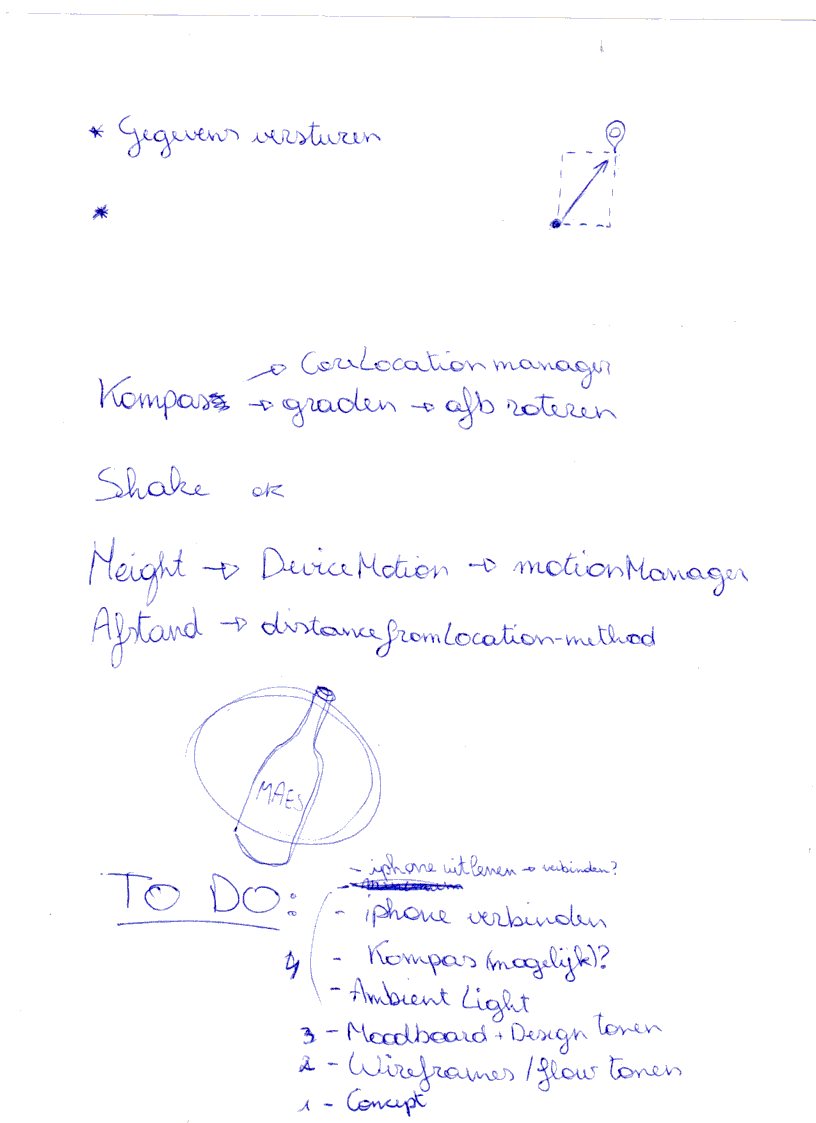 * Gegevens versturen
*
→ CoreLocationmanager
Kompas → graden → afb roteren
Shake ok
Height → DeviceMotion → motionManager
Afstand → distancefromLocation-method
MAES
- iphone uitlenen → verbinden?
TO DO:
- iphone verbinden
4 - Kompas (mogelijk)?
- Ambient Light
3 - Moodboard + Design tonen
2 - Wireframes / flow tonen
1 - Concept